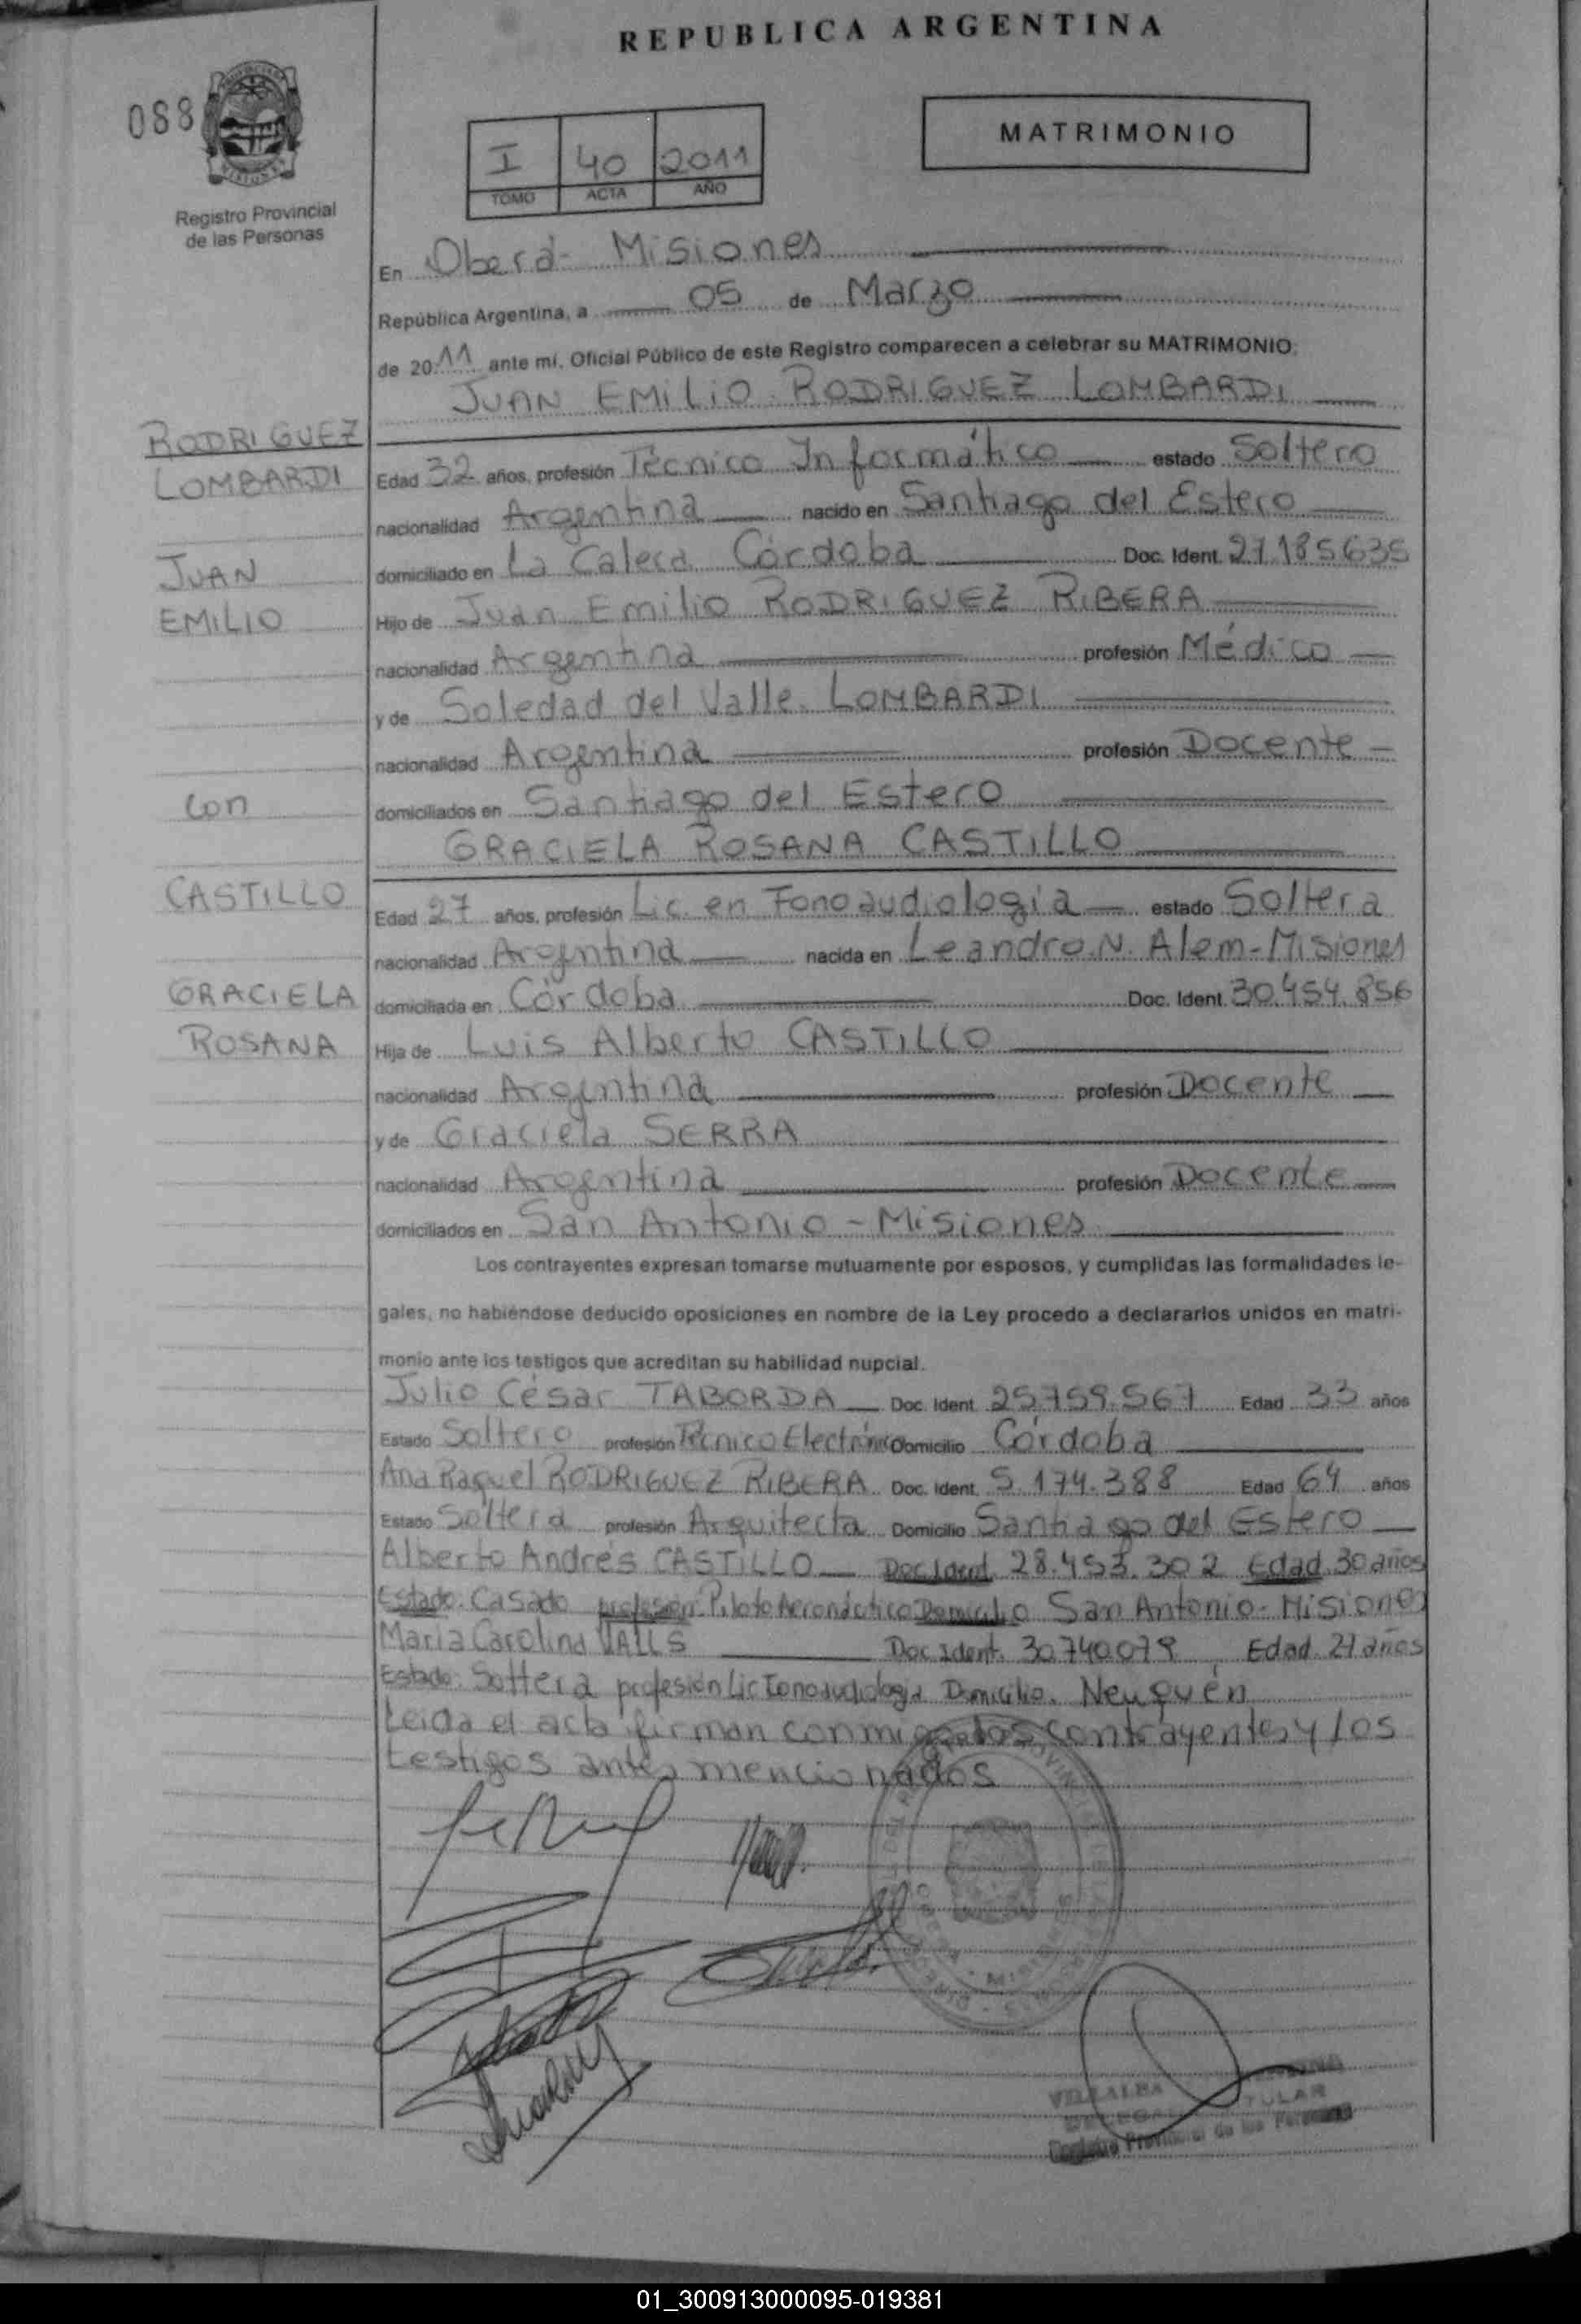 REPUBLICA ARGENTINA
088
MATRIMONIO
I 40 2011
TOMO ACTA AÑO
Registro Provincial
de las Personas
En Oberá - Misiones
República Argentina, a 05 de Marzo
de 2011 ante mí, Oficial Público de este Registro comparecen a celebrar su MATRIMONIO:
JUAN EMILIO RODRIGUEZ LOMBARDI
RODRIGUEZ
LOMBARDI
Edad 32 años, profesión Técnico Informático estado Soltero
nacionalidad Argentina nacido en Santiago del Estero
JUAN
domiciliado en La Calera Córdoba Doc. Ident. 27.185635
EMILIO
Hijo de Juan Emilio RODRIGUEZ RIBERA
nacionalidad Argentina profesión Médico
y de Soledad del Valle LOMBARDI
nacionalidad Argentina profesión Docente
con
domiciliados en Santiago del Estero
GRACIELA ROSANA CASTILLO
CASTILLO
Edad 27 años, profesión Lic. en Fonoaudiologia estado Soltera
nacionalidad Argentina nacida en Leandro N. Alem-Misiones
GRACIELA
domiciliada en Córdoba Doc. Ident. 30.454.856
ROSANA
Hija de Luis Alberto CASTILLO
nacionalidad Argentina profesión Docente
y de Graciela SERRA
nacionalidad Argentina profesión Docente
domiciliados en San Antonio - Misiones
Los contrayentes expresan tomarse mutuamente por esposos, y cumplidas las formalidades le-
gales, no habiéndose deducido oposiciones en nombre de la Ley procedo a declararlos unidos en matri-
monio ante los testigos que acreditan su habilidad nupcial.
Julio César TABORDA Doc. Ident. 25.759.567 Edad 33 años
Estado Soltero profesión Técnico Electrónico Domicilio Córdoba
Ana Raquel RODRIGUEZ RIBERA Doc. Ident. 5.174.388 Edad 64 años
Estado Soltera profesión Arquitecta Domicilio Santiago del Estero
Alberto Andrés CASTILLO Doc Ident. 28.453.302 Edad 30 años
Estado: Casado profesión: Piloto Aeronáutico Domicilio San Antonio - Misiones
María Carolina VALLS Doc Ident. 30.740.079 Edad 27 años
Estado: Soltera profesión Lic Fonoaudiologia Domicilio. Neuquén
Leida el acta firman conmigo los contrayentes y los
testigos antes mencionados
VILLALBA
DELEGADA TITULAR
Registro Provincial de las Personas
01_300913000095-019381